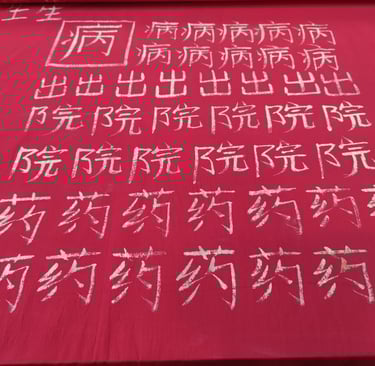 生
病 病病病病病
病病病病病
出出出出出出出出
院院院院院院
院院院院院院
药药药药药药
药药药药药药